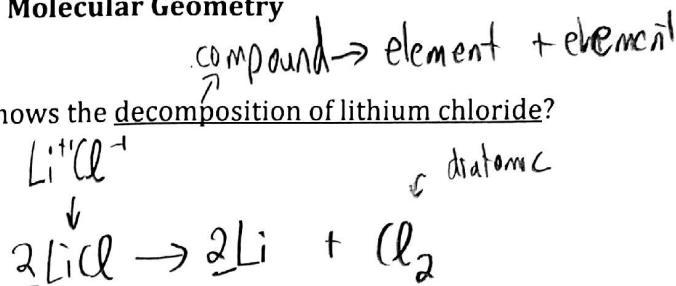 Molecular Geometry
compound → element + element
nows the decomposition of lithium chloride?
Li⁺¹Cl⁻¹
diatomic
↓
2LiCl → 2Li + Cl₂